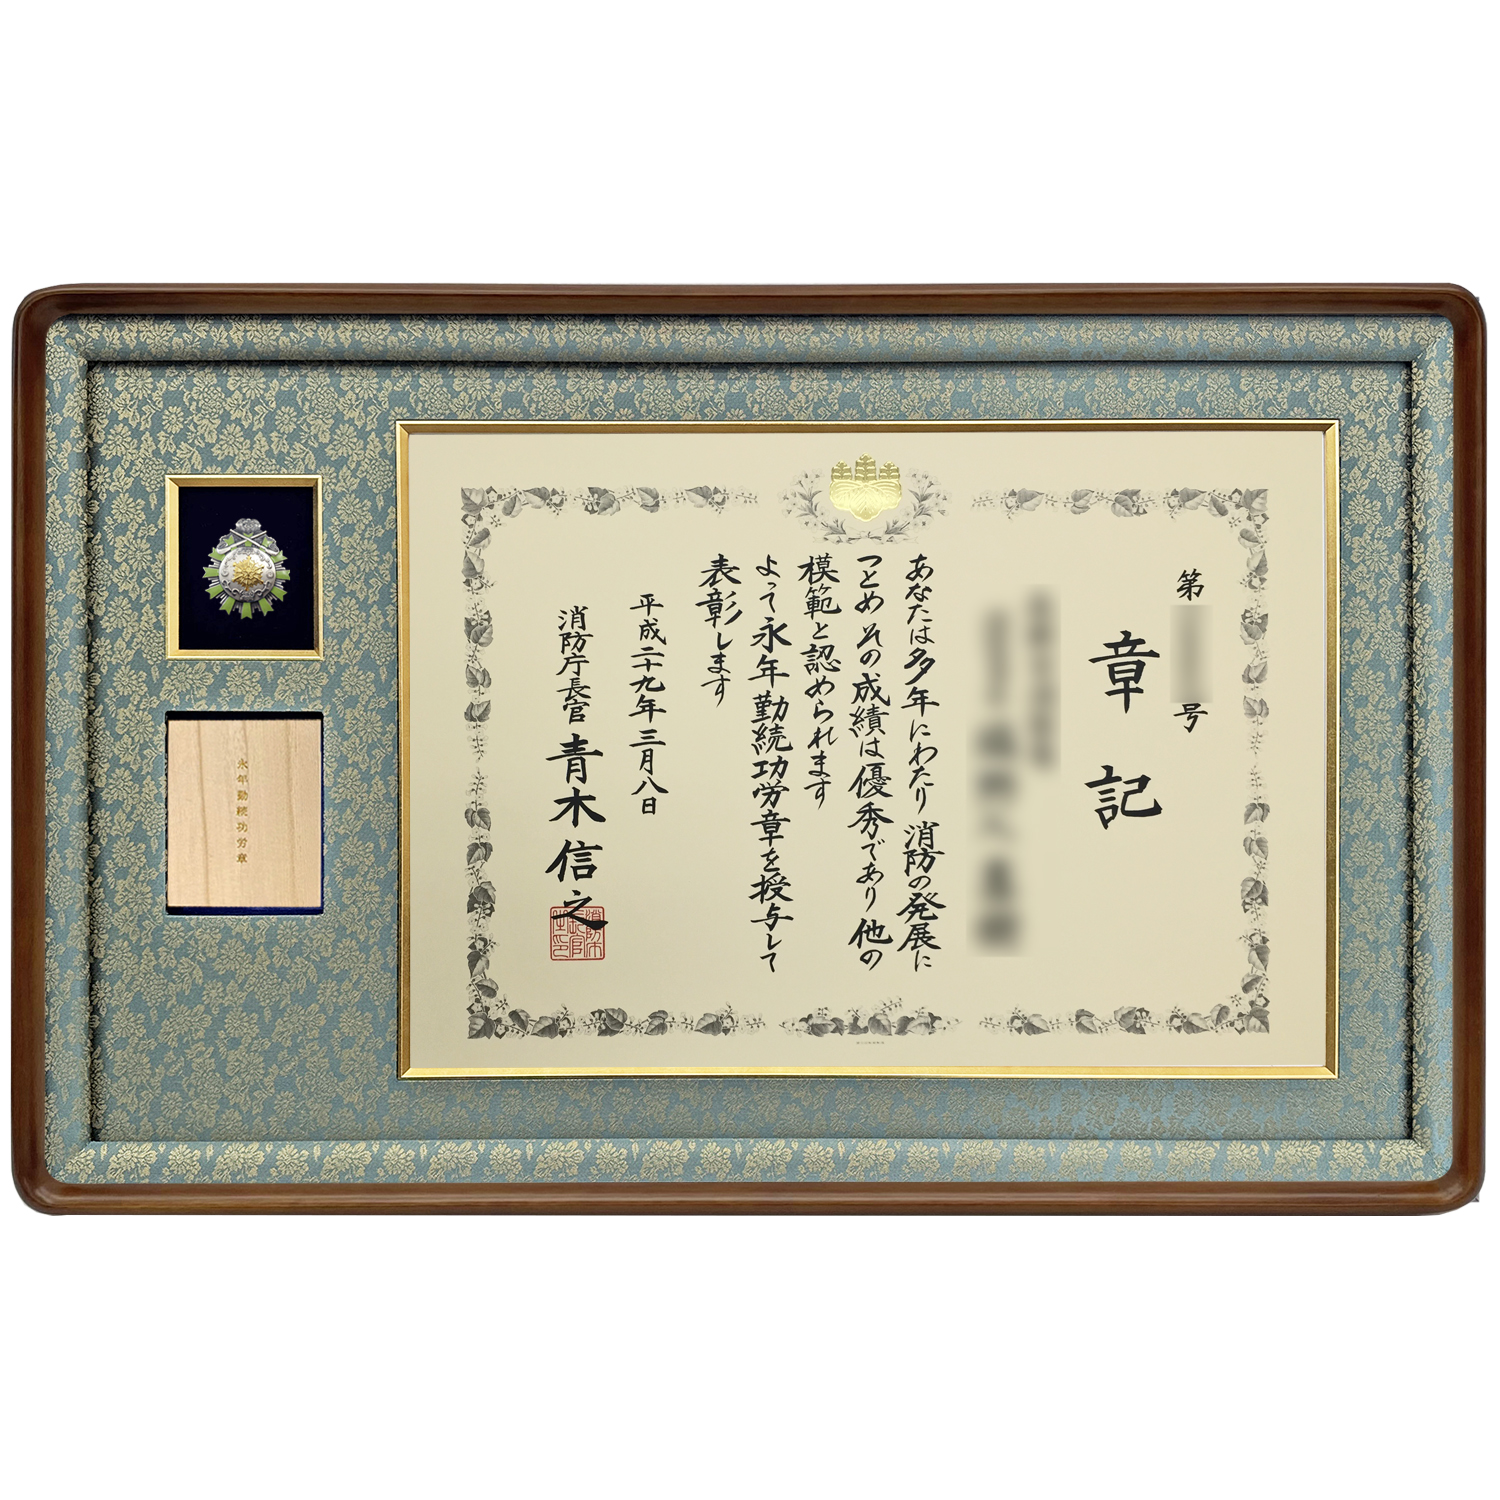 第 号
章記
あなたは多年にわたり消防の発展に
つとめその成績は優秀であり他の
模範と認められます
よって永年勤続功労章を授与して
表彰します
平成二十九年三月八日
消防庁長官 青木信之
永年勤続功労章